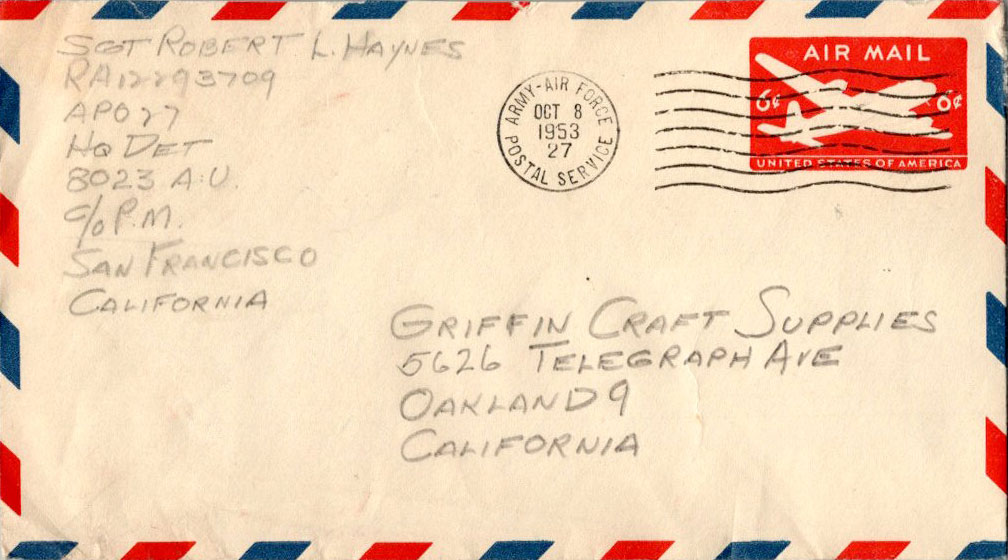 SGT ROBERT L. HAYNES
RA12293709
APO 27
HQ DET
8023 A.U.
c/o P.M.
SAN FRANCISCO
CALIFORNIA
ARMY-AIR FORCE
OCT 8
1953
27
POSTAL SERVICE
AIR MAIL
6¢ 6¢
UNITED STATES OF AMERICA
GRIFFIN CRAFT SUPPLIES
5626 TELEGRAPH AVE
OAKLAND 9
CALIFORNIA